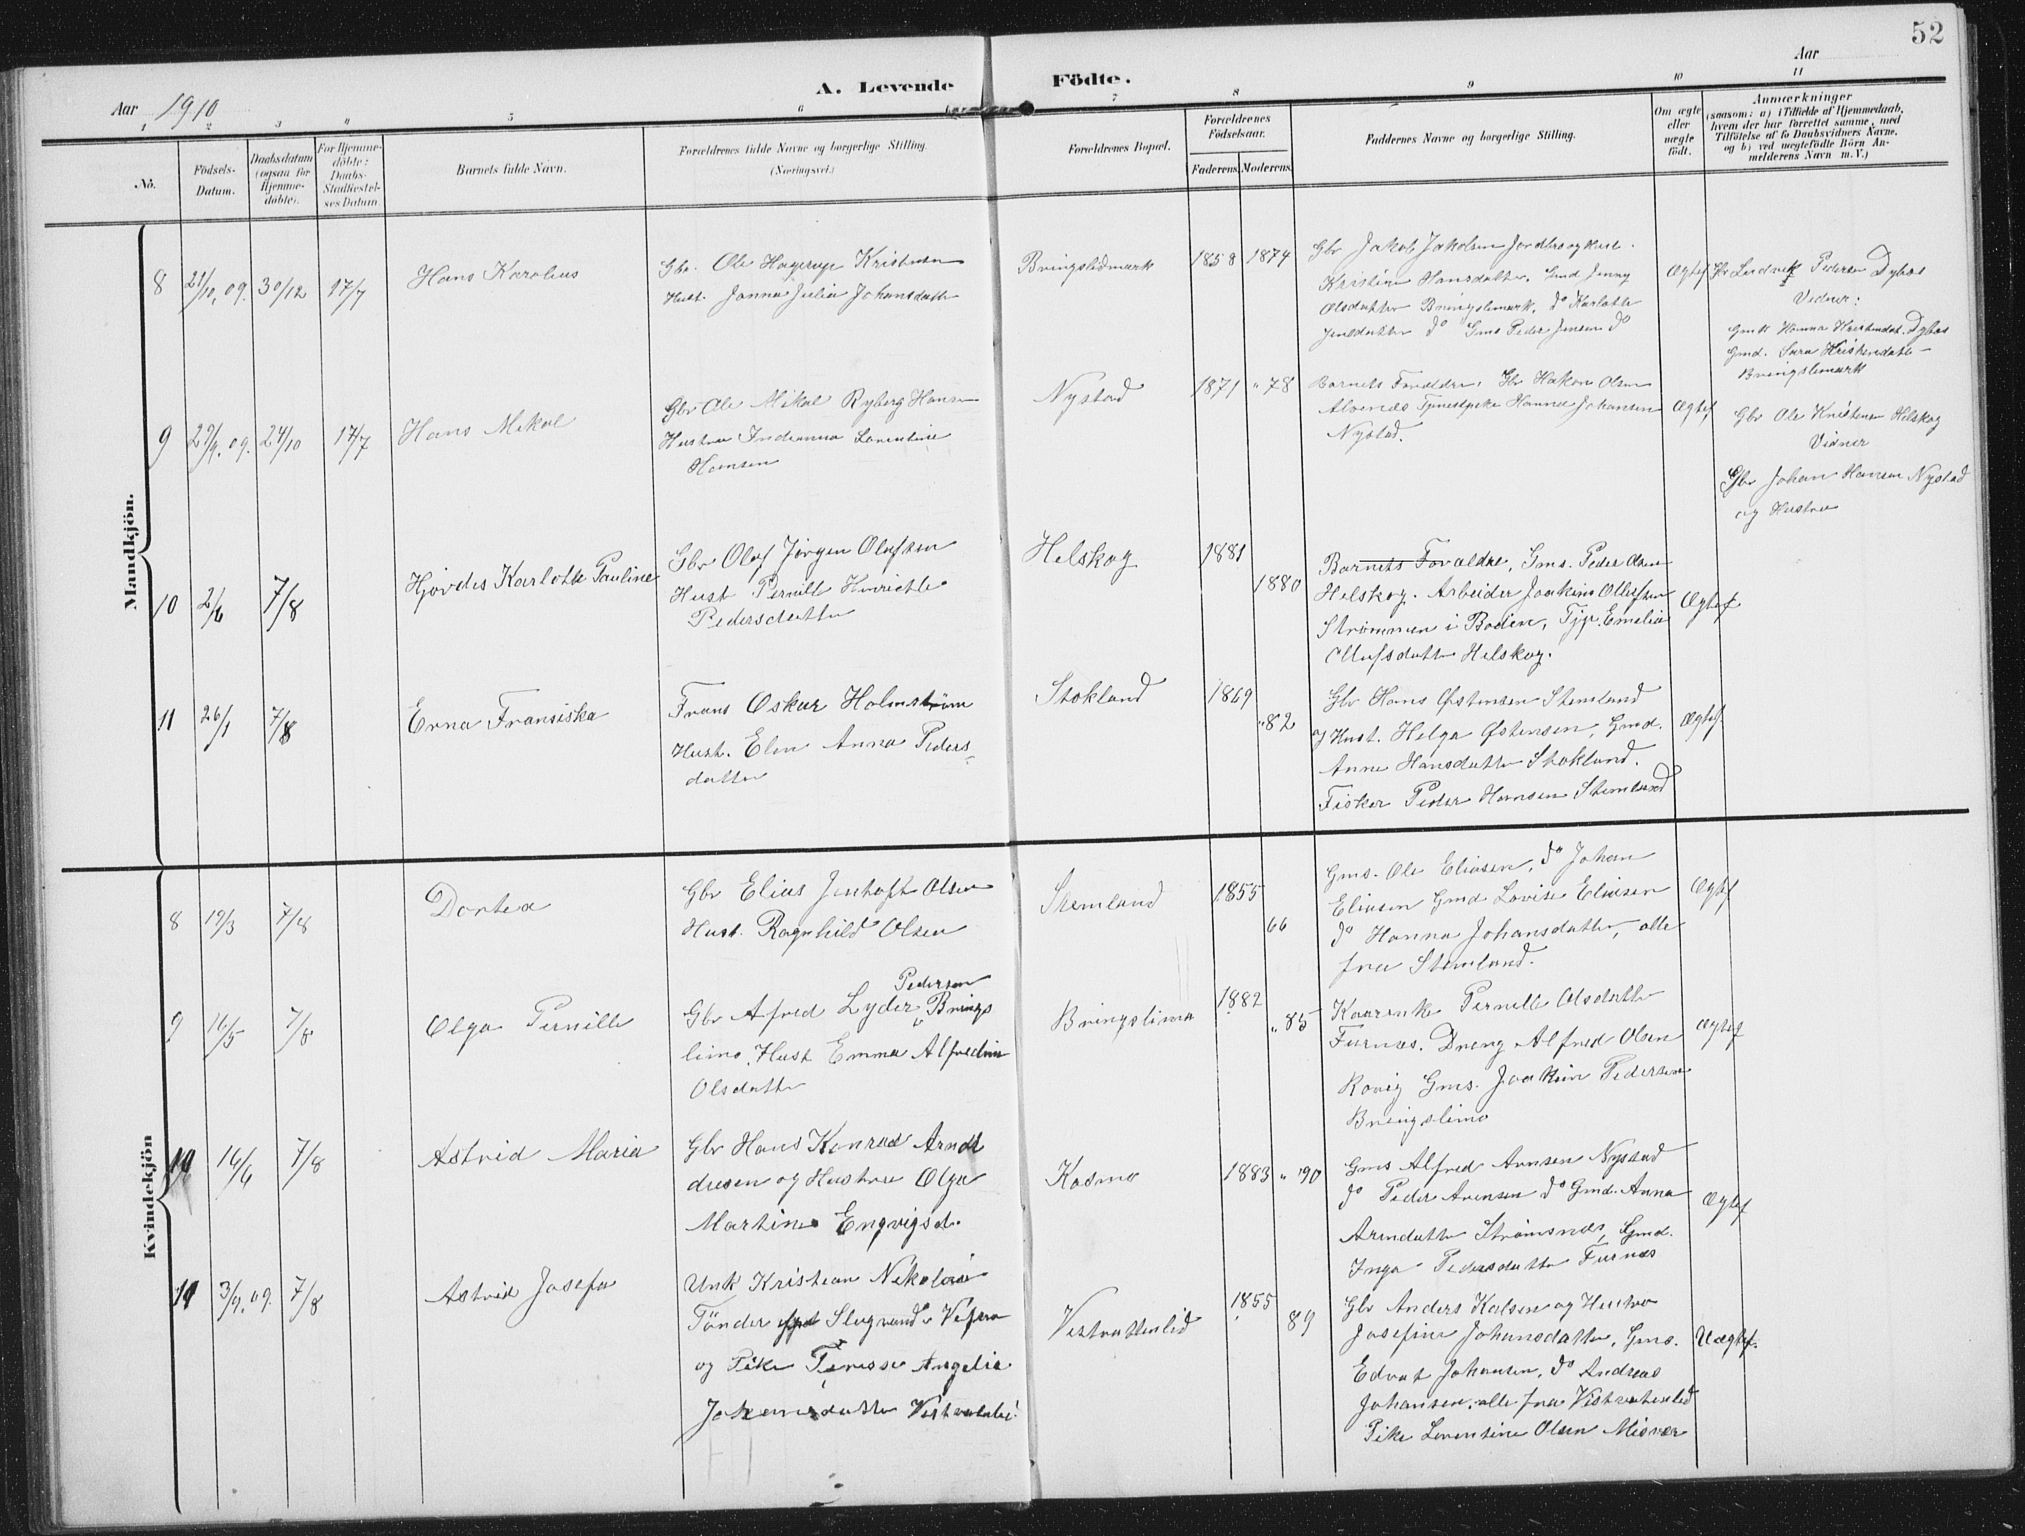 52
Aar 1910
A. Levende Födte.
Aar
1 2 3 4 5 6 7 8 9 10 11
No.
Födsels-Datum.
Daabsdatum (ogsaa for Hjemme-döbte).
For Hjemme-döbte: Daabs-Stadfæstel-ses Datum
Barnets fulde Navn.
Forældrenes fulde Navne og borgerlige Stilling.
(Næringsvei.)
Forældrenes Bopæl.
Forældrenes Födselsaar.
Faderens. Moderens.
Faddernes Navne og borgerlige Stilling.
Om ægte eller uægte födt.
Anmærkninger
(saasom: a) i Tilfælde af Hjemmedaab,
hvem der har forrettet samme, med
Tilföielse af to Daabsvidners Navne,
og b) ved uægtefödte Börn An-
melderens Navn m. V.)
Mandkjön.
8 21/10, 09. 30/12 17/7
Hans Karolius
Gbr. Ole Hagerup Kristensen
Hust. Janna Julia Johansdatter
Bringslidmark
1858 1874
Gbr Jakob Jakobsen Jordbro og Hust.
Kristine Hansdatter. Gmd Jenny
Olsdatter Bringslimark, do Karlotte
Jensdatter do Gms Peder Jensen do
Ægtef
Gbr Ludvik Pedersen Dybos
Vidner:
Gmd Hanna Kristendat. Dybos
Gmd. Sara Kristensdatter
Bringslimark
9 29/9. 09. 24/10 17/7
Hans Mikal
Gbr Ole Mikal Ryberg Hansen
Hustru Indianna Lorentine
Hansen
Nystad
1871 " 78
Barnets Forældre, Gbr Hakon Olsen
Alvenes Tjenestpike Hanna Johansen
Nystad.
Ægtef
Gbr Ole Kristensen Helskog
Vidner
Gbr Johan Hansen Nystad
og Hustru
10 2/6 7/8
Hjördis Karlotte Pauline
Gbr Olaf Jörgen Olufsen
Hust Pernille Henriette
Pedersdatter
Helskog
1881 1880
Barnets Forældre, Gms. Peder Olsen
Helskog. Arbeider Joakim Olufsen
Strømmen i Bodin, Tjp. Emelia
Olufsdatter Helskog.
Ægtef
11 26/1 7/8
Erna Fransiska
Frans Oskar Holmstrøm
Hust. Elen Anna Peders-
datter
Stokland
1869 "82
Gbr Hans Østensen Stemland
og Hust. Helga Østensen, Gmd.
Anne Hansdatter Stokland.
Fisker Peder Hansen Stemland
Ægtef
Kvindekjön
8 19/3 7/8
Dortea
Gbr Elias Jentoft Olsen
Hust. Ragnhild Olsen
Stemland
1855 66
Gms. Ole Eliasen, do Johan
Eliasen Gmd Lovise Eliasen
do Hanna Johansdatter, alle
fra Stemland.
Ægtef
9 16/5 7/8
Olga Pernille
Pedersen
Gbr Alfred Lyder Brings
limo, Hust Emma Alfredine
Olsdatter
Bringslimo
1882 " 85
Kaarenke Pernille Olsdatter
Furnæs. Dreng Alfred Olsen
Kovig Gms. Joakim Pedersen
Bringslimo
Ægtef
10 16/6 7/8
Astrid Maria
Gbr Hans Konrad Arndt
dresen og Hustru Olga
Martine Engvigsd.
Kosmo
1883 " 90
Gms Alfred Arnsen Nystad
do Peder Arensen do Gmd. Anna
Arnsdatter Strömsnes, Gmd.
Inga Pedersdatter Furnæs
Ægtef
11 3/9. 09. 7/8
Astrid Josefa
Unk Kristian Nikolai
Tönder Slogrand Vefsen
og Pike Teresse Angelie
Johansdatter Vestvatnlid
Vestvattenlid
1855 89
Gbr Anders Kalsen og Hustru
Josefine Johansdatter, Gms.
Edvat Johansen, do Andreas
Johansen, alle fra Vestvatenlid
Pike Lorentine Olsen Misvær
Uægtef.